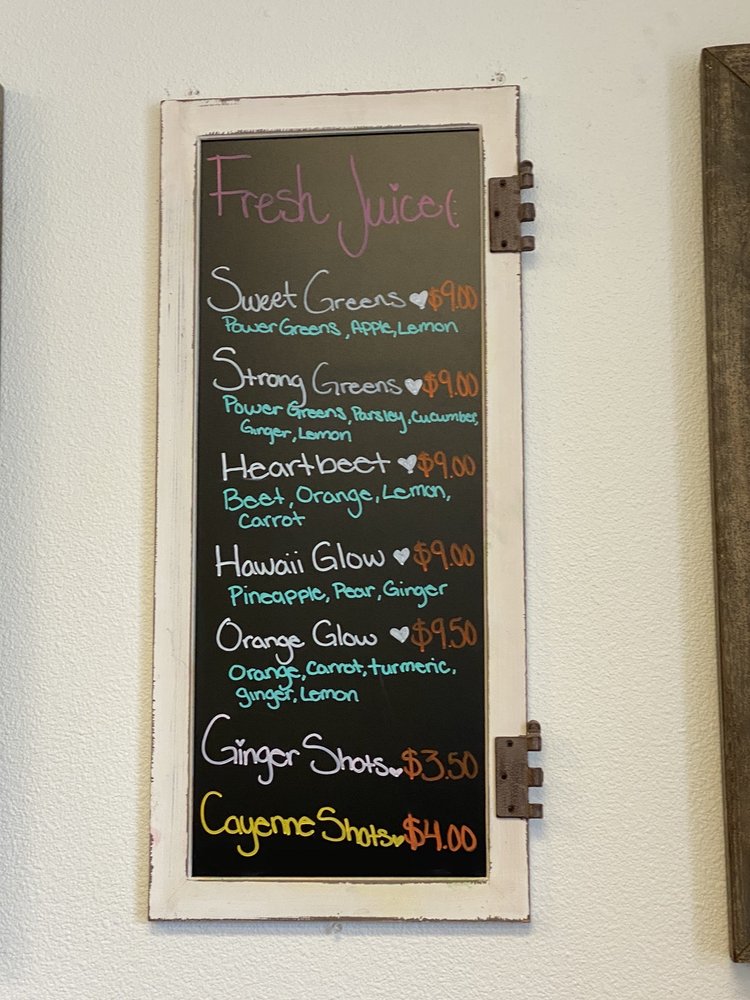 Fresh Juice
Sweet Greens $9.00
Power Greens, Apple, Lemon
Strong Greens $9.00
Power Greens, Parsley, Cucumber,
Ginger, Lemon
Heartbeet $9.00
Beet, Orange, Lemon,
Carrot
Hawaii Glow $9.00
Pineapple, Pear, Ginger
Orange Glow $9.50
Orange, Carrot, turmeric,
ginger, Lemon
Ginger Shots $3.50
Cayenne Shots $4.00